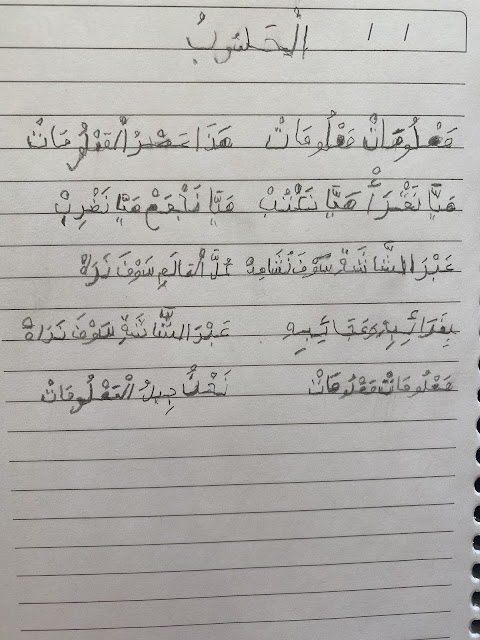 الْحَاسُوبُ / /
مَعْلُومَاتْ مَعْلُومَاتْ هَذَا عَصْرُ الْمَعْلُومَاتْ
هَيَّا نَقْرَأْ هَيَّا نَكْتُبْ هَيَّا نَجْمَعْ هَيَّا نَضْرِبْ
عَبْرَ الشَّاشَةِ سَوْفَ نُشَاهِدْ كُلَّ الْعَالَمِ سَوْفَ نَرَاهْ
بِغَرَائِبِهِ وَعَجَائِبِهِ عَبْرَ الشَّاشَةِ سَوْفَ نَرَاهْ
مَعْلُومَاتْ مَعْلُومَاتْ نَحْنُ جِيلُ الْمَعْلُومَاتْ